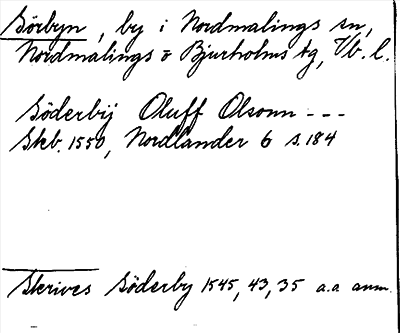 Sörbyn, by i Nordmalings sn,
Nordmalings o Bjurholms tg, Vb. l.
Söderbÿ Oluff Olsonn ---
Skb. 1550, Nordlander 6 s. 184
Skrives Söderby 1545, 43, 35 a.a. anm.